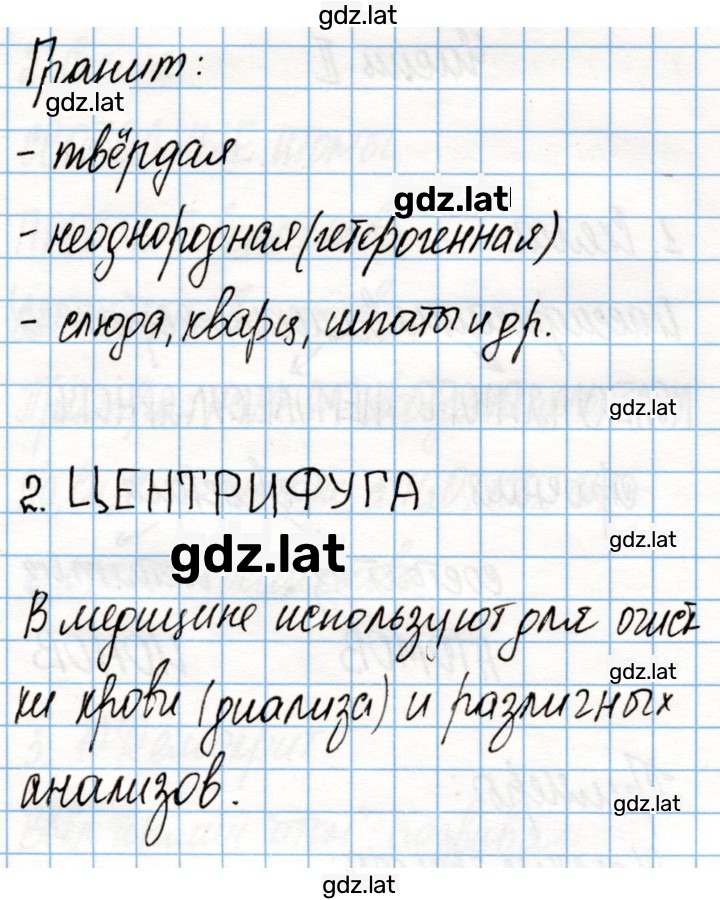 gdz.lat
Гранит:
gdz.lat
- твёрдая
gdz.lat
- неоднородная (гетерогенная)
- слюда, кварц, шпаты и др.
gdz.lat
2. ЦЕНТРИФУГА
gdz.lat
gdz.lat
В медицине используют для очист-
gdz.lat
ки крови (диализа) и различных
анализов.
gdz.lat
gdz.lat